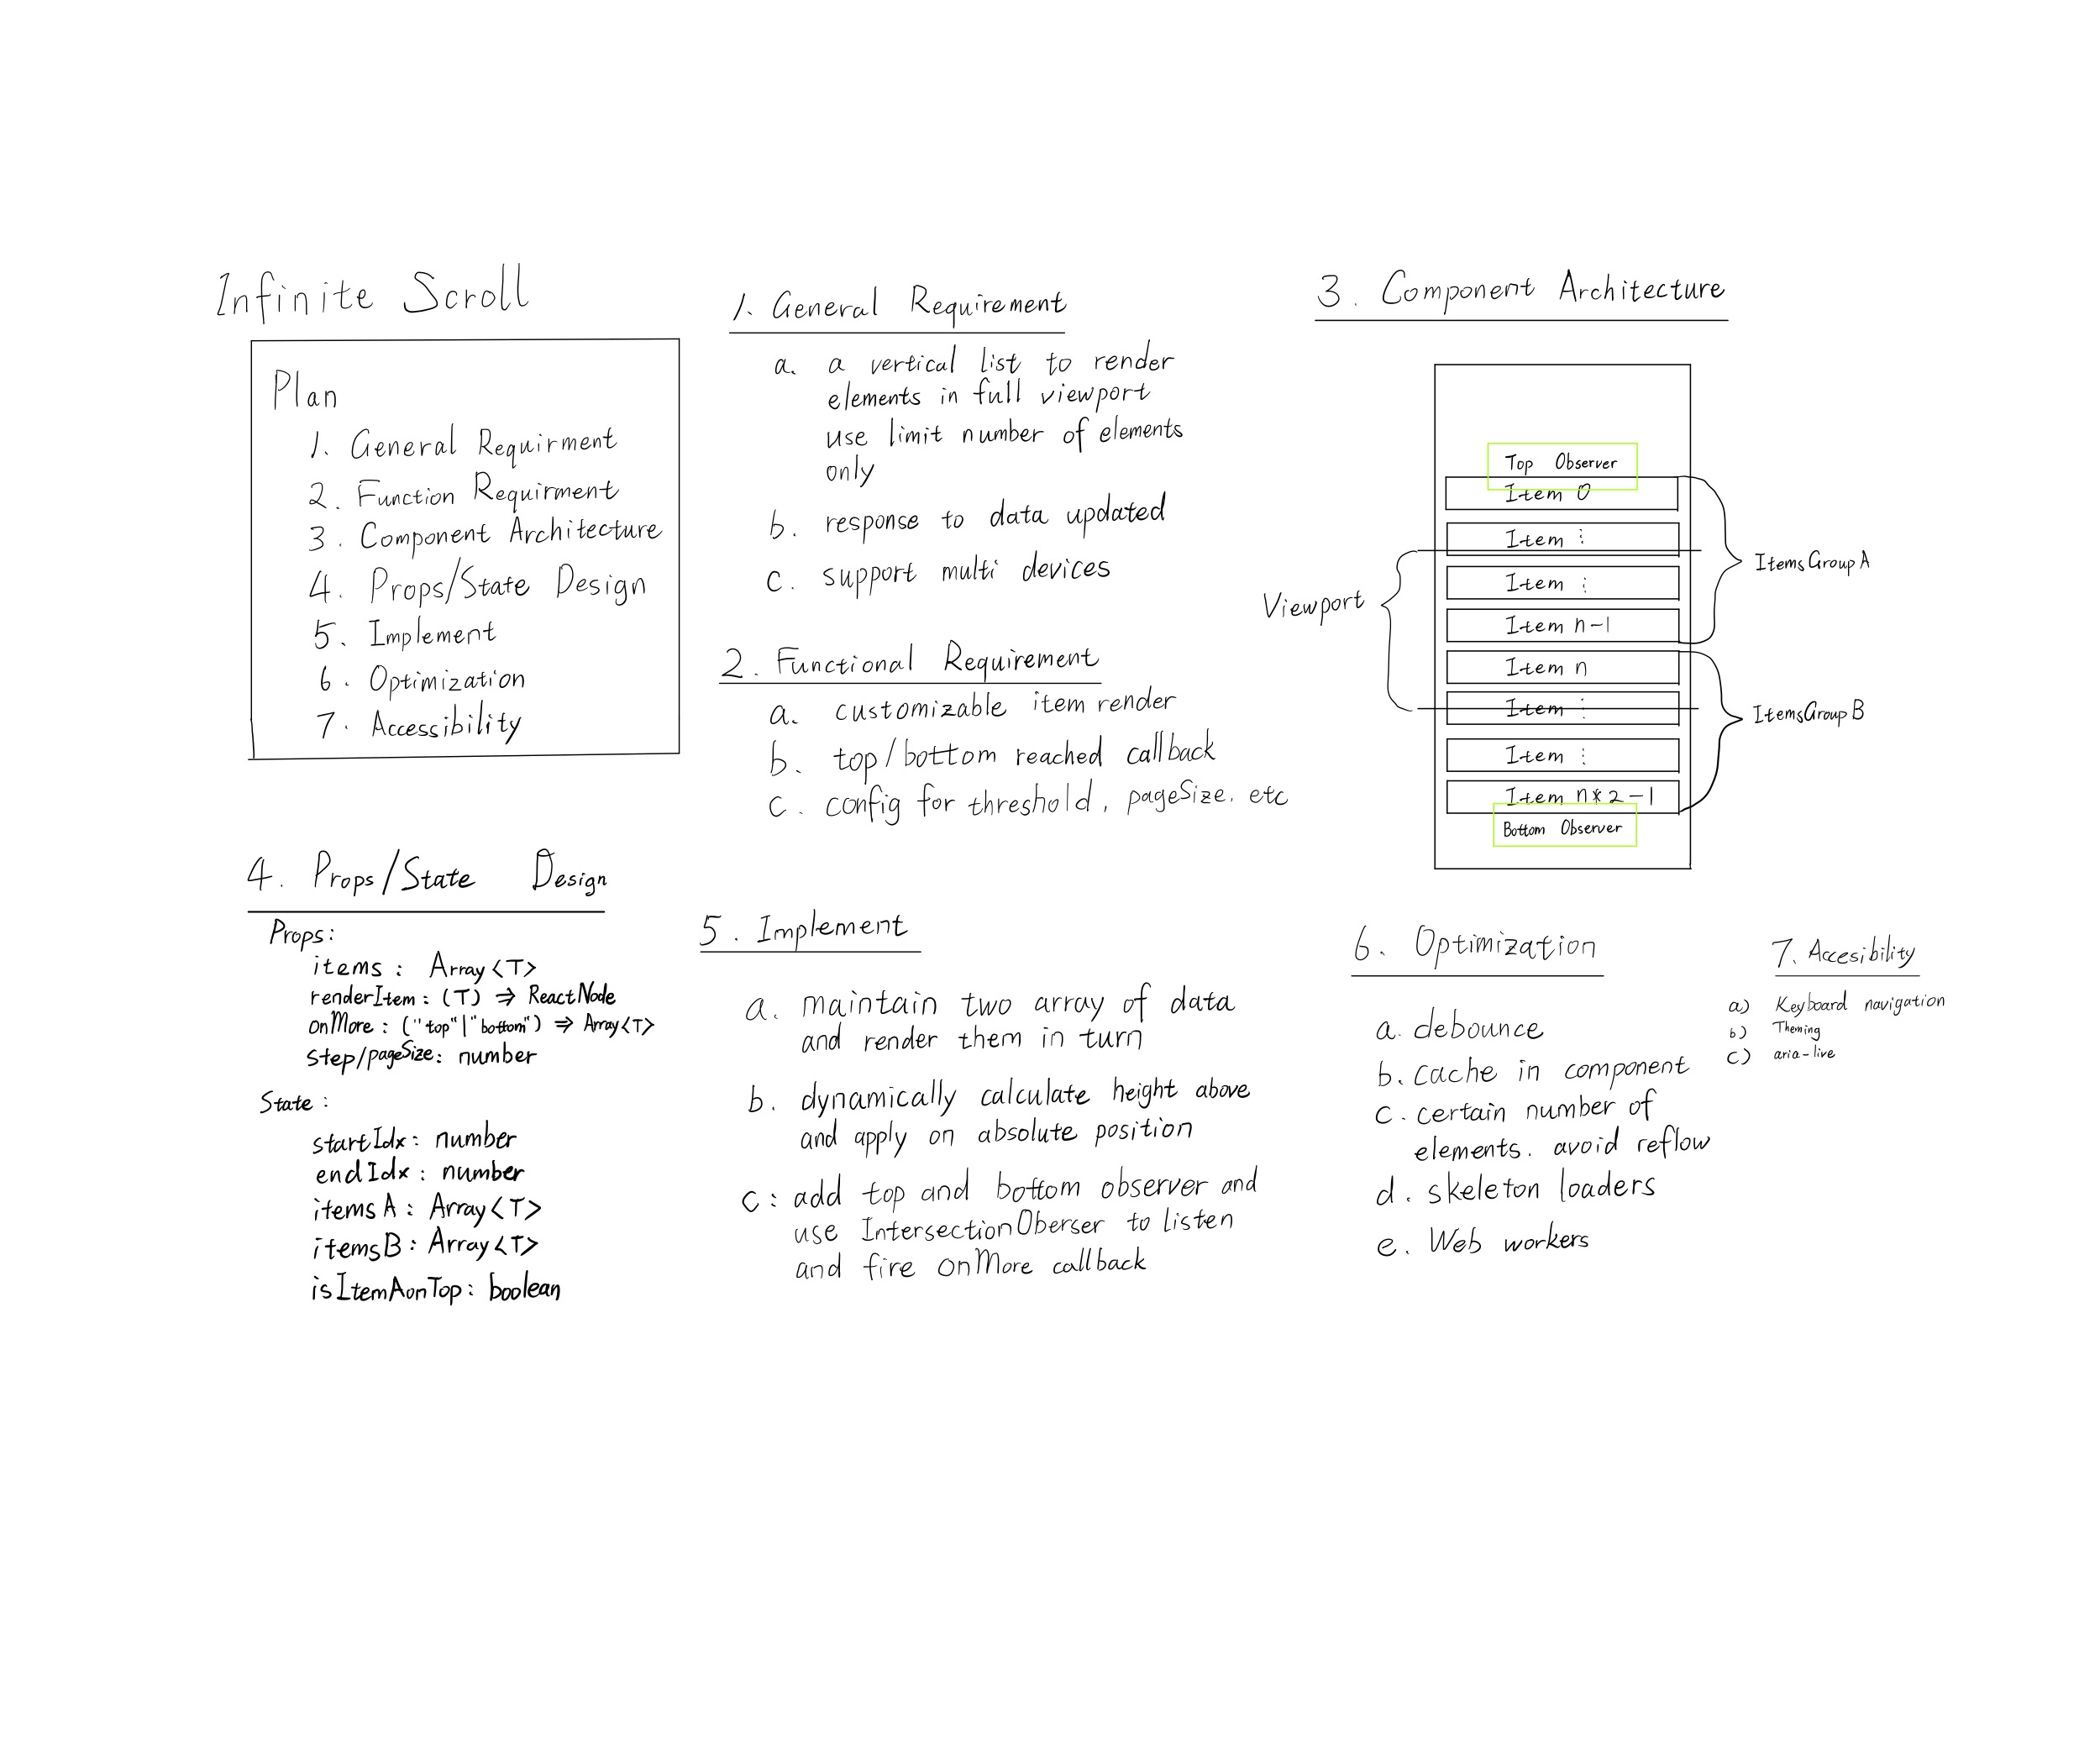 Infinite Scroll
Plan
1. General Requirment
2. Function Requirment
3. Component Architecture
4. Props/State Design
5. Implement
6. Optimization
7. Accessibility
1. General Requirement
a. a vertical list to render
elements in full viewport
use limit number of elements
only
b. response to data updated
c. support multi devices
2. Functional Requirement
a. customizable item render
b. top/bottom reached callback
c. config for threshold, pageSize. etc
3. Component Architecture
Top Observer
Item 0
Item ⋮
Item ⋮
Item n-1
Item n
Item ⋮
Item ⋮
Item n*2-1
Bottom Observer
Viewport
ItemsGroupA
ItemsGroupB
4. Props/State Design
Props:
items: Array<T>
renderItem: (T) => ReactNode
onMore: ("top"|"bottom") => Array<T>
step/pageSize: number
State:
startIdx: number
endIdx: number
itemsA: Array<T>
itemsB: Array<T>
isItemAonTop: boolean
5. Implement
a. maintain two array of data
and render them in turn
b. dynamically calculate height above
and apply on absolute position
c: add top and bottom observer and
use IntersectionOberser to listen
and fire onMore callback
6. Optimization
a. debounce
b. cache in component
c. certain number of
elements. avoid reflow
d. skeleton loaders
e. Web workers
7. Accesibility
a) Keyboard navigation
b) Theming
c) aria-live